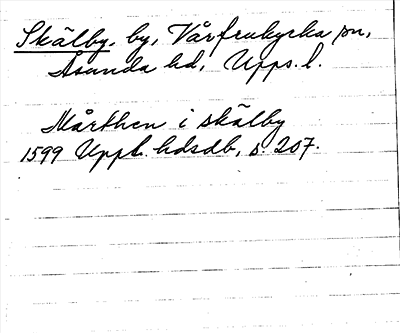 Skälby, by, Vårfrukyrka sn,
Åsunda hd, Upps. l.
Mårthen i Skälby
1599 Uppl. hdsdb, s. 207.